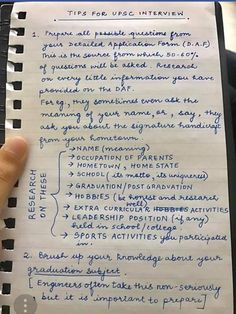 TIPS FOR UPSC INTERVIEW
1. Prepare all possible questions from
your Detailed Application Form (D.A.F)
This is the source from which 50-60%
of questions will be asked. Research
on every little information you have
provided on the DAF.
For eg, they sometimes even ask the
meaning of your name, or, say, they
ask you about the signature handicraft
from your hometown.
RESEARCH ON THESE
→ NAME (meaning)
→ OCCUPATION OF PARENTS
→ HOMETOWN, HOME STATE
→ SCHOOL (its motto, its uniqueness)
→ GRADUATION / POST GRADUATION
→ HOBBIES (be honest and research well)
→ EXTRA CURRICULAR HOBBIES ACTIVITIES
→ LEADERSHIP POSITION (if any)
held in school/college.
→ SPORTS ACTIVITIES you participated
in.
2. Brush up your knowledge about your
graduation subject
[Engineers often take this non-seriously
but it is important to prepare]